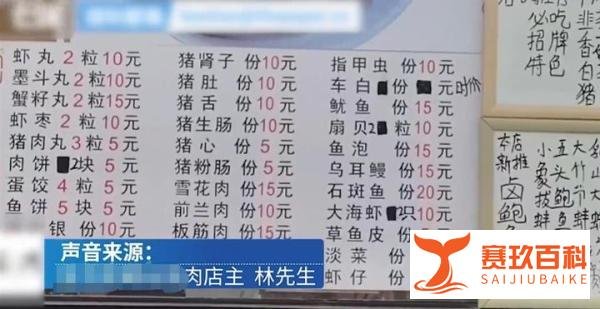 虾丸2粒10元
墨斗丸2粒10元
蟹籽丸2粒15元
虾枣2粒10元
猪肉丸3粒5元
肉饼2块5元
蛋饺4粒5元
鱼饼5块5元
银
猪肾子份10元
猪肚份10元
猪舌份10元
猪生肠份10元
猪心份5元
猪粉肠份5元
雪花肉份15元
前兰肉份10元
板筋肉份15元
指甲虫份10元
车白份元时价
鱿鱼份15元
扇贝2粒10元
鱼泡份15元
乌耳鳗份15元
石斑鱼份20元
大海虾2只10元
草鱼皮份
淡菜份
虾仔份
必吃
招牌
特色
非
香
白
猪
本店
新推
卤鲍
小象拔
五头鲍
大竹
声音来源：
肉店主 林先生
赛玖百科
SAIJIUBAIKE